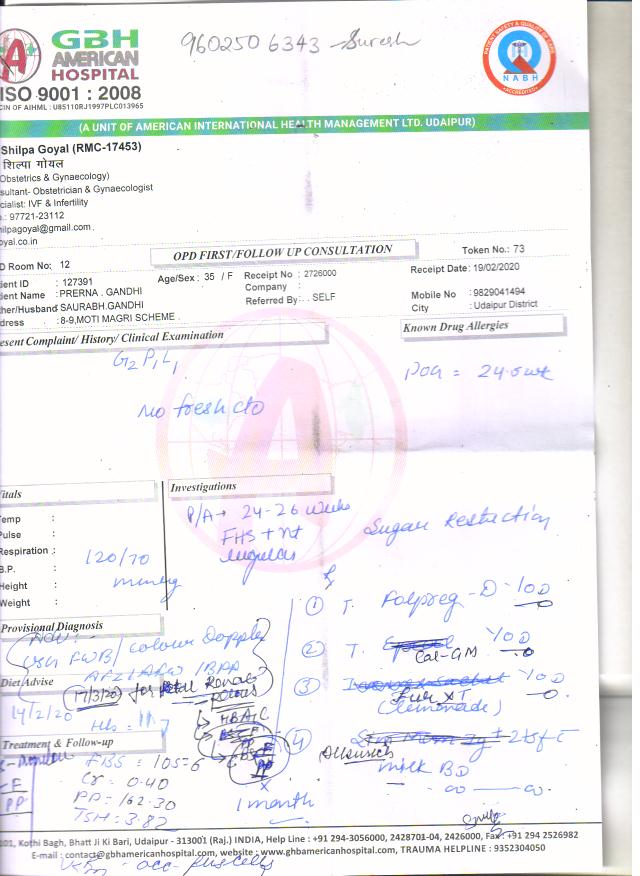 9602506343 - Suresh
GBH
AMERICAN
HOSPITAL
ISO 9001 : 2008
CIN OF AIHML : U85110RJ1997PLC013965
PATIENT SAFETY & QUALITY OF CARE
NABH
ACCREDITED
(A UNIT OF AMERICAN INTERNATIONAL HEALTH MANAGEMENT LTD. UDAIPUR)
Shilpa Goyal (RMC-17453)
शिल्पा गोयल
Obstetrics & Gynaecology)
sultant- Obstetrician & Gynaecologist
cialist: IVF & Infertility
.: 97721-23112
ilpagoyal@gmail.com
oyal.co.in
OPD FIRST/FOLLOW UP CONSULTATION
Token No.: 73
D Room No: 12
Receipt Date: 19/02/2020
ient ID : 127391
Age/Sex : 35 / F
Receipt No : 2726000
Company :
Referred By : . SELF
ient Name : PRERNA . GANDHI
ther/Husband SAURABH.GANDHI
dress : 8-9,MOTI MAGRI SCHEME .
Mobile No : 9829041494
City : Udaipur District
esent Complaint/ History/ Clinical Examination
Known Drug Allergies
G2P1L1
POG = 24.5wk
No fresh c/o
itals
Investigations
P/A → 24-26 weeks
FHS + nt
regular
Sugar Restriction
Temp :
Pulse :
Respiration :
B.P. : 120/70
mmHg
Height :
Weight :
Rx
① T. Folpreg - D - 1 OD
Provisional Diagnosis
FWB/ colour Doppler
AFI / BPP
② T. Cal-GM 1 OD
Diet Advise
17/3/20 for
③ 1 OD
(Lemonade)
14/2/20
Hb = 11.7
HBA1C
Treatment & Follow-up
④ 2tsf c
milk BD
FBS = 105.6
Cr = 0.40
PP = 162.30
TSH = 3.82
F
PP
1 month
101, Kothi Bagh, Bhatt Ji Ki Bari, Udaipur - 313001 (Raj.) INDIA, Help Line : +91 294-3056000, 2428701-04, 2426000, Fax : +91 294 2526982
E-mail : contact@gbhamericanhospital.com, website : www.gbhamericanhospital.com, TRAUMA HELPLINE : 9352304050
occ pus cells